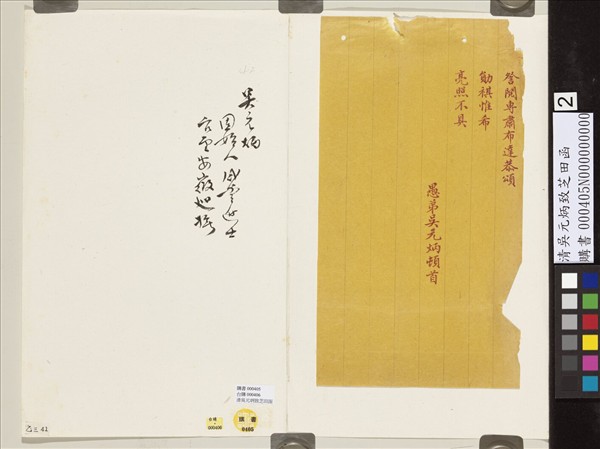 詧閱專肅布達恭頌
勛祺惟希
亮照不具
愚弟吳元炳頓首
吳元炳
固始人咸豐進士
官至安徽巡撫
購書 000405
000406
購書
0405
乙三 41
2
清吳元炳致芝田函
購書 000405N000000000